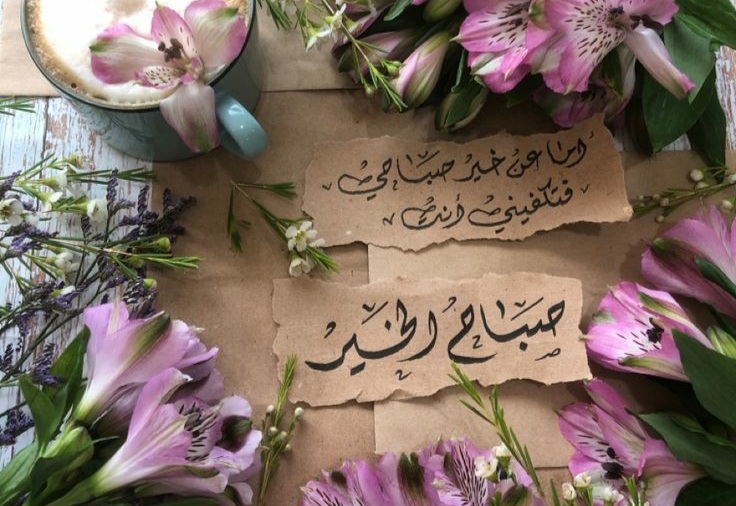 أما عن خير صباحي
فتكفيني أنت
صباح الخير